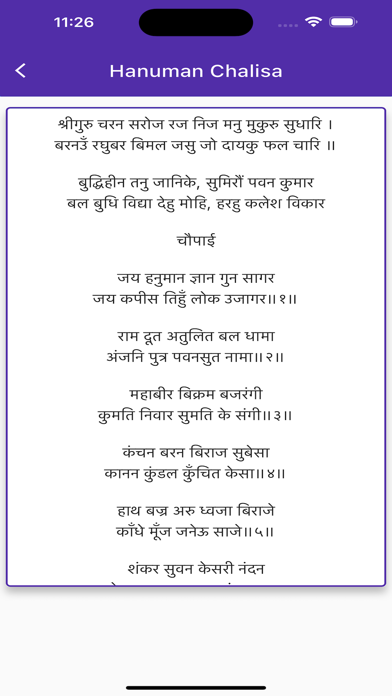 11:26
Hanuman Chalisa
श्रीगुरु चरन सरोज रज निज मनु मुकुरु सुधारि ।
बरनउँ रघुबर बिमल जसु जो दायकु फल चारि ॥
बुद्धिहीन तनु जानिके, सुमिरौं पवन कुमार
बल बुधि विद्या देहु मोहि, हरहु कलेश विकार
चौपाई
जय हनुमान ज्ञान गुन सागर
जय कपीस तिहुँ लोक उजागर॥१॥
राम दूत अतुलित बल धामा
अंजनि पुत्र पवनसुत नामा॥२॥
महाबीर बिक्रम बजरंगी
कुमति निवार सुमति के संगी॥३॥
कंचन बरन बिराज सुबेसा
कानन कुंडल कुँचित केसा॥४॥
हाथ बज्र अरु ध्वजा बिराजे
काँधे मूँज जनेऊ साजे॥५॥
शंकर सुवन केसरी नंदन